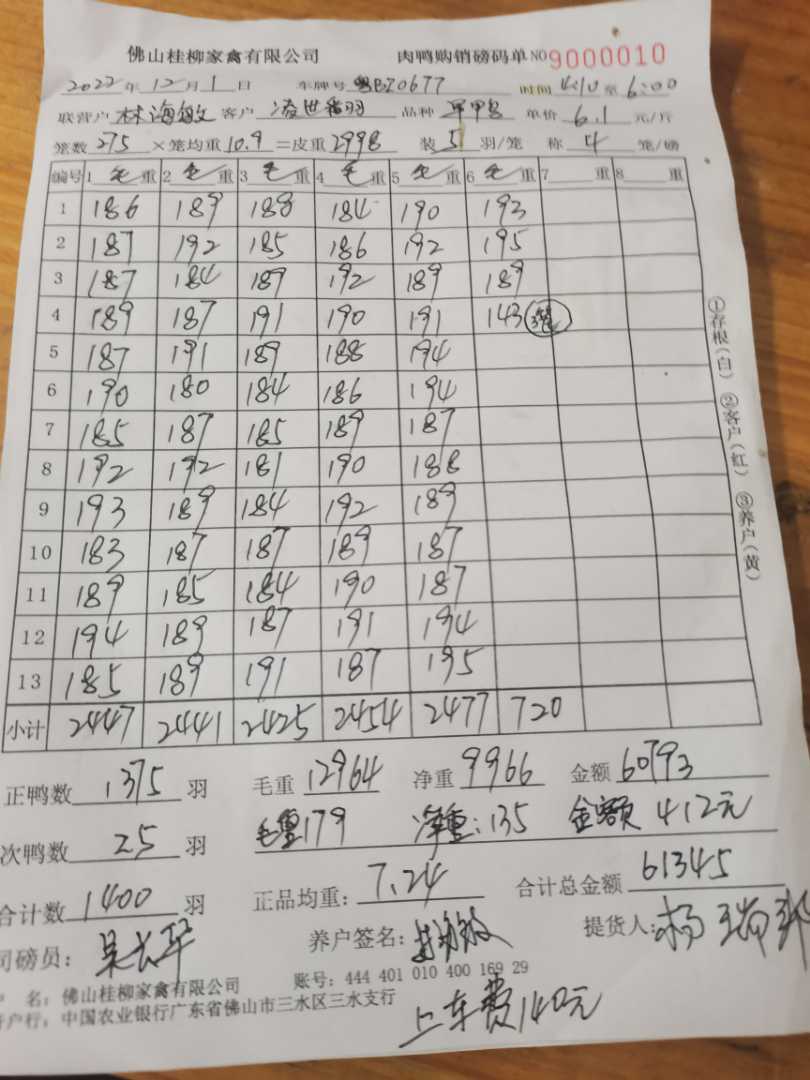 佛山桂柳家禽有限公司 肉鸭购销磅码单 NO 9000010
2022年12月1日 车牌号 粤BZ0677 时间 4:10 至 6:00
联营户 林海敏 客户 品种 单价 6.1 元/斤
笼数 275 ×笼均重 10.9 =皮重 2998 装 5 羽/笼 称 4 笼/磅
编号 1 毛重 2 毛重 3 毛重 4 毛重 5 毛重 6 毛重 7 重 8 重
1 186 189 188 184 190 193
2 187 192 185 186 192 195
3 187 184 189 192 189 189
4 189 187 191 190 191 143 3笼
5 187 191 189 188 194
6 190 180 184 186 194
7 185 187 185 189 187
8 192 192 181 190 188
9 193 189 184 192 189
10 183 187 187 189 187
11 189 185 184 190 187
12 194 189 187 191 194
13 185 189 191 187 195
小计 2447 2441 2425 2454 2477 720
①存根(白) ②客户(红) ③养户(黄)
正鸭数 1375 羽 毛重 12964 净重 9966 金额 60793
次鸭数 25 羽 毛重179 净重:135 金额 412元
合计数 1400 羽 正品均重: 7.24 合计总金额 61345
司磅员: 吴长华 养户签名: 提货人: 杨瑞邦
户 名: 佛山桂柳家禽有限公司 账号: 444 401 010 400 169 29
开户行: 中国农业银行广东省佛山市三水区三水支行
上车费140元